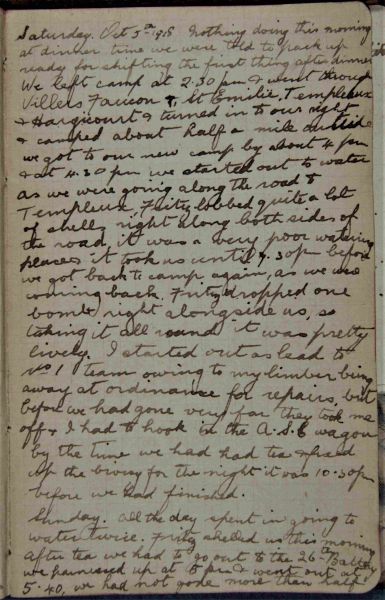 Saturday. Oct 5th 1918 Nothing doing this morning
at dinner time we were told to pack up
ready for shifting the first thing after dinner
We left camp at 2.30 pm & went through
Villers Faucon & St Emilie, Templeux
& Hargicourt & turned in to our right
& camped about half a mile outside
we got to our new camp by about 4 pm
& at 4.30 pm we started out to water
as we were going along the road to
Templeux, Fritz lobbed quite a lot
of shells right along both sides of
the road, it was a very poor watering
place & it took us until 7.30 pm before
we got back to camp again, as we was
coming back. Fritz dropped one
bomb right alongside us, so
taking it all round it was pretty
lively. I started out as lead to
No 1 team owing to my limber being
away at ordinance for repairs, but
before we had gone very far they took me
off & I had to hook in the A.S.C wagon
by the time we had had tea & fixed
up the bivvy for the night it was 10.30pm
before we had finished.
Sunday. all the day spent in going to
water twice. Fritz shelled us this morning
After tea we had to go out to the 26th Battery
we harnessed up at 5 pm & went out at
5.40, we had not gone more than half